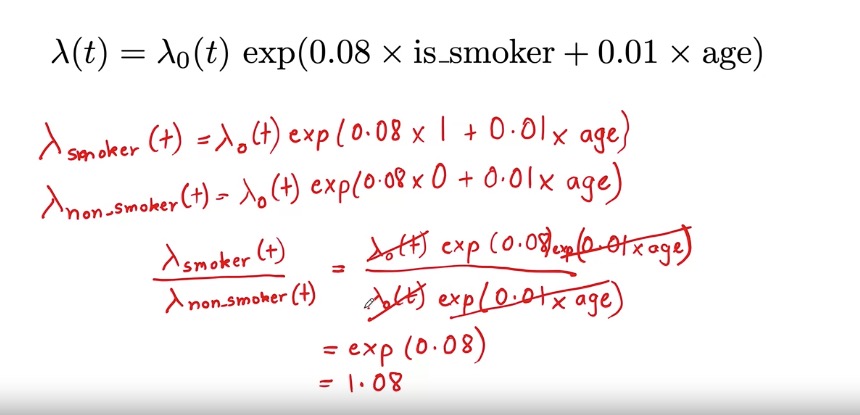 λ(t) = λ₀(t) exp(0.08 × is_smoker + 0.01 × age)
λ smoker (t) = λ₀(t) exp(0.08 × 1 + 0.01 × age)
λ non-smoker (t) = λ₀(t) exp(0.08 × 0 + 0.01 × age)
λ smoker (t) / λ non-smoker (t) = λ₀(t) exp(0.08) exp(0.01 × age) / λ₀(t) exp(0.01 × age)
= exp(0.08)
= 1.08